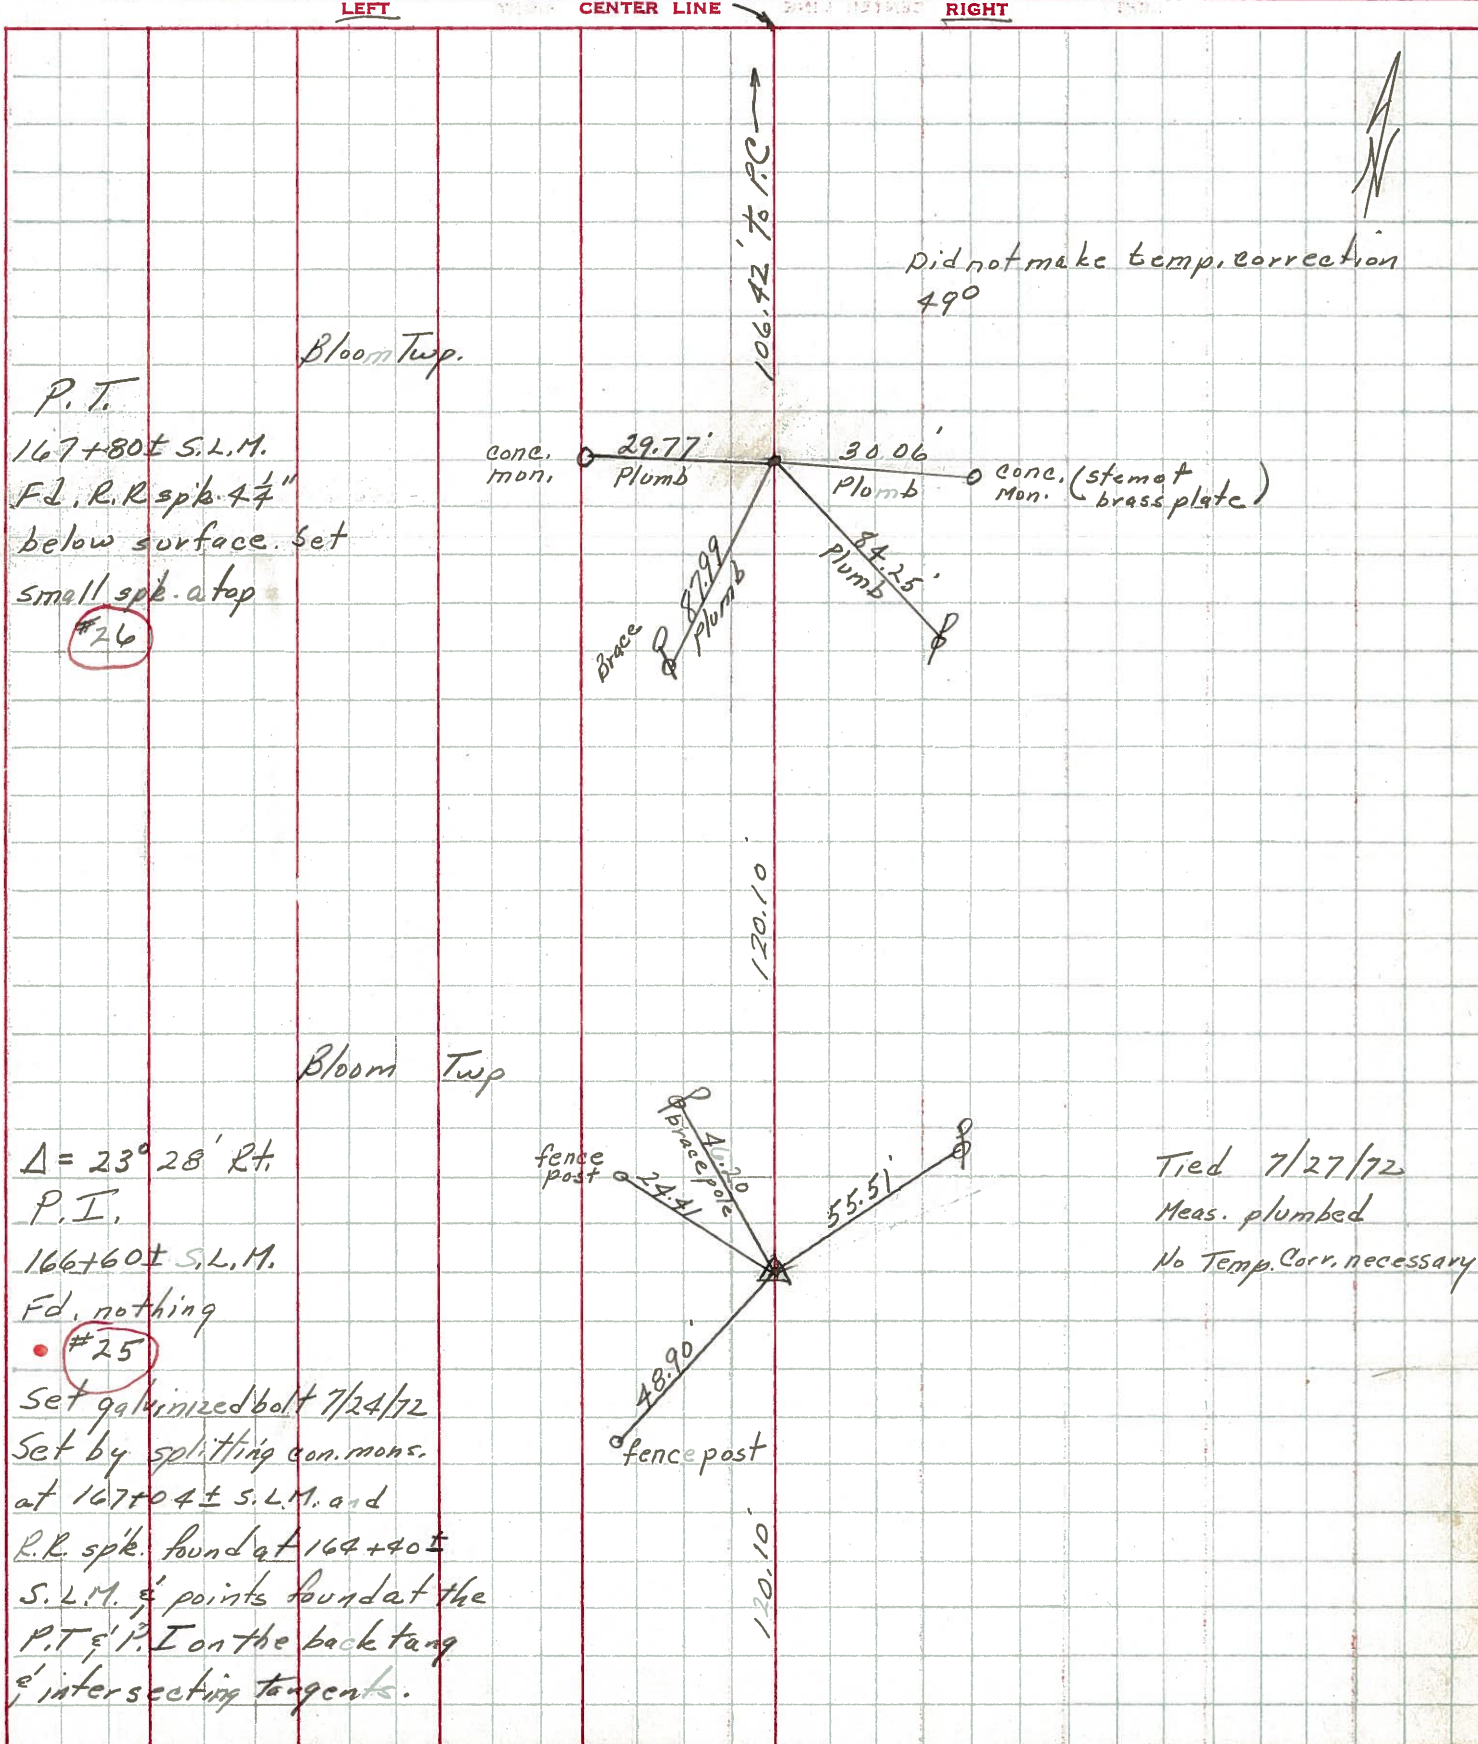 LEFT CENTER LINE RIGHT
106.42' to P.C
Did not make temp. correction
49°
Bloom Twp.
P.T.
167+80± S.L.M.
Fd. R.R spk. 4¼"
below surface. Set
small spk. atop
#26
conc.
mon.
29.77'
Plumb
30.06'
Plomb
conc.
Mon.
(stem of
brass plate)
87.99
Plumb
Brace
84.25'
Plumb
120.10'
Bloom Twp
Δ = 23° 28' Rt.
P.I.
166+60± S.L.M.
Fd. nothing
#25
Set galvinized bolt 7/24/72
Set by splitting con. mons.
at 167+04± S.L.M. and
R.R. spk. found at 164+40±
S.L.M. & points found at the
P.T & P.I on the back tang
& intersecting tangents.
fence
post
24.41
46.20
brace pole
55.51'
48.90'
fence post
Tied 7/27/72
Meas. plumbed
No Temp. Corr. necessary
120.10'